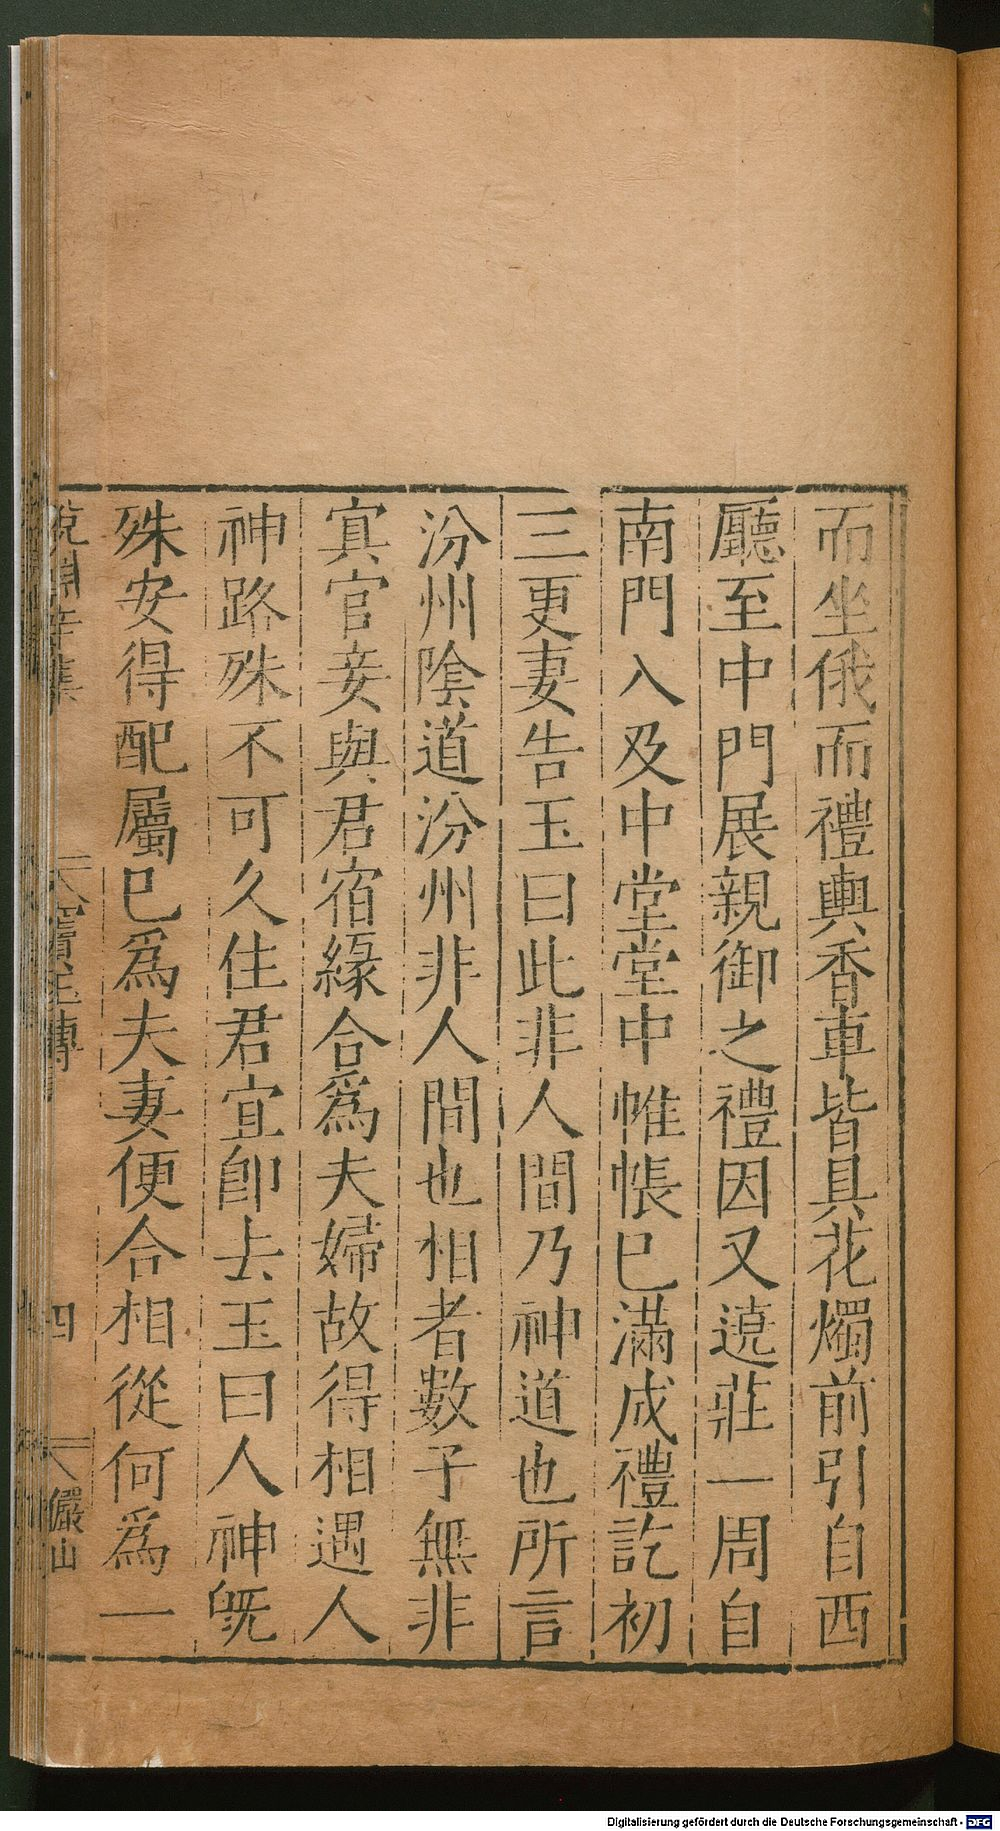 而坐俄而禮輿香車皆具花燭前引自西
廳至中門展親御之禮因又遶莊一周自
南門入及中堂堂中帷帳已滿成禮訖初
三更妻告玉曰此非人間乃神道也所言
汾州陰道汾州非人間也相者數子無非
冥官妾與君宿緣合爲夫婦故得相遇人
神路殊不可久住君宜即去玉曰人神既
殊安得配屬已爲夫妻便合相從何爲一
說淵辛集 竇玉傳 四 儼山
Digitalisierung gefördert durch die Deutsche Forschungsgemeinschaft - DFG